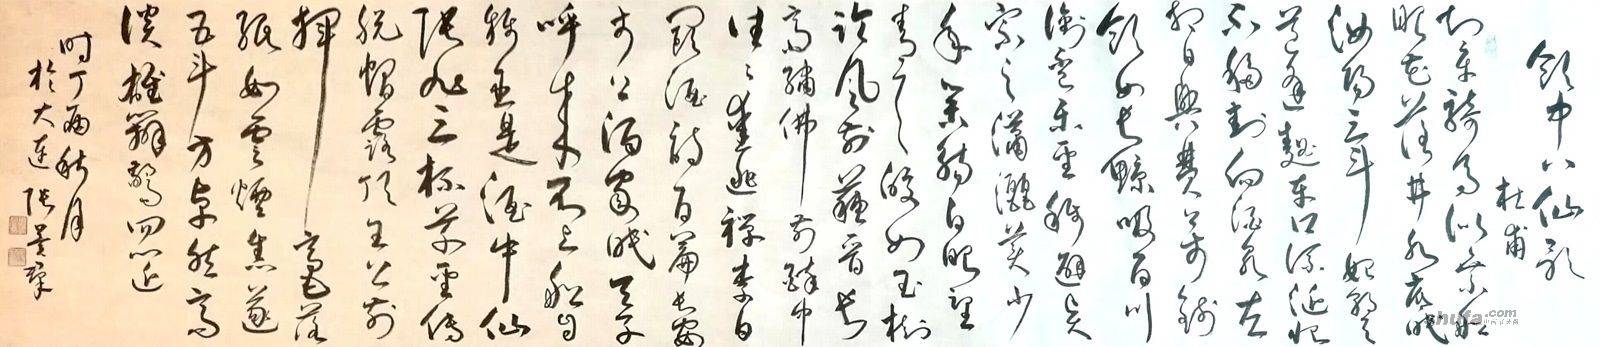 飲中八仙歌
杜甫
知章騎馬似乘船
眼花落井水底眠
汝陽三斗始朝天
道逢麴車口流涎恨
不移封向酒泉左
相日興費萬錢
飲如長鯨吸百川
銜杯樂聖稱避賢
宗之瀟灑美少
年舉觴白眼望
青天皎如玉樹
臨風前蘇晉長
齋繡佛前醉中
往往愛逃禪李白
一斗酒詩百篇長安
市上酒家眠天子
呼來不上船自
稱臣是酒中仙
張旭三杯草聖傳
脫帽露頂王公前
揮毫落
紙如雲煙焦遂
五斗方卓然高
談雄辯驚四筵
时丁酉秋月
於大連 張
shufa.com